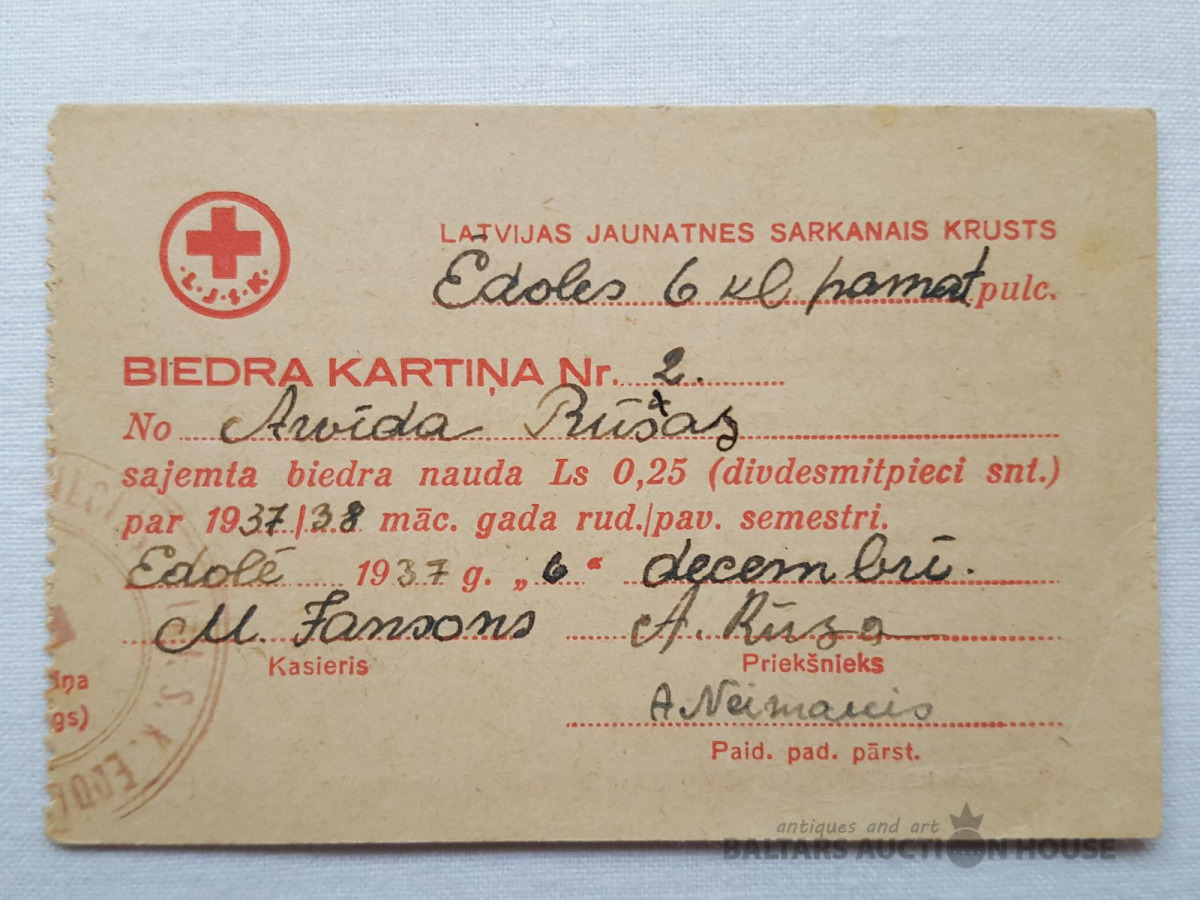 LATVIJAS JAUNATNES SARKANAIS KRUSTS
L.J.S.K.
Ēdoles 6 kl pamat pulc.
BIEDRA KARTIŅA Nr. 2.
No Arvīda Rūžas
sajemta biedra nauda Ls 0,25 (divdesmitpieci snt.)
par 1937/38 māc. gada rud./pav. semestri.
Edolē 1937 g. „6“ decembrī.
M. Jansons A. Rūza
Kasieris Priekšnieks
A Neimanis
Paid. pad. pārst.
iņa
gs)
S. K. EDOL
antiques and art
BALTARS AUCTION HOUSE